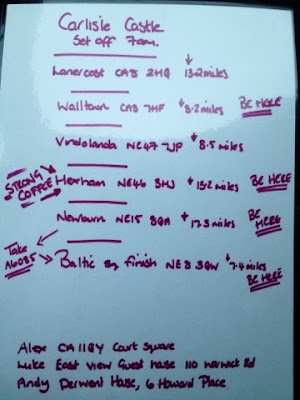 Carlisle Castle
Set off 7am.
Lanercost CA8 2HQ ↓ 13.2 miles
Walltown CA8 7HF ↓ 8.2 miles BE HERE
Vindolanda NE47 7JP ↓ 8.5 miles
STRONG COFFEE Hexham NE46 3HJ ↓ 15.2 miles BE HERE
Newburn NE15 8QA ↓ 17.3 miles BE HERE
Take A6085 Baltic Sq Finish NE8 3QW ↓ 7.4 miles BE HERE
Alex CA1 1QY Court Square
Luke East View Guest house 110 Warwick Rd
Andy Derwent House, 6 Howard Place